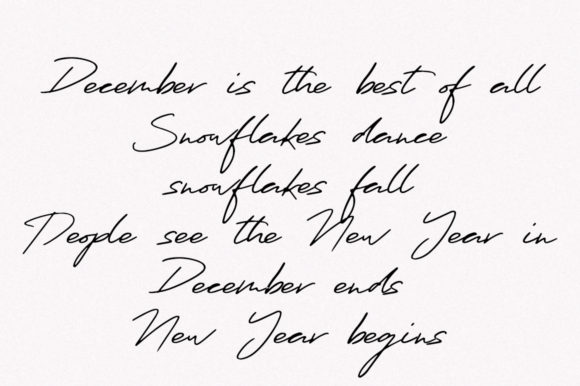 December is the best of all
Snowflakes dance
snowflakes fall
People see the New Year in
December ends
New Year begins